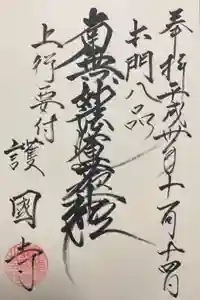 奉拝 平成卅年十一月十四日
本門八品
南無妙法蓮華経
上行要付
護國寺